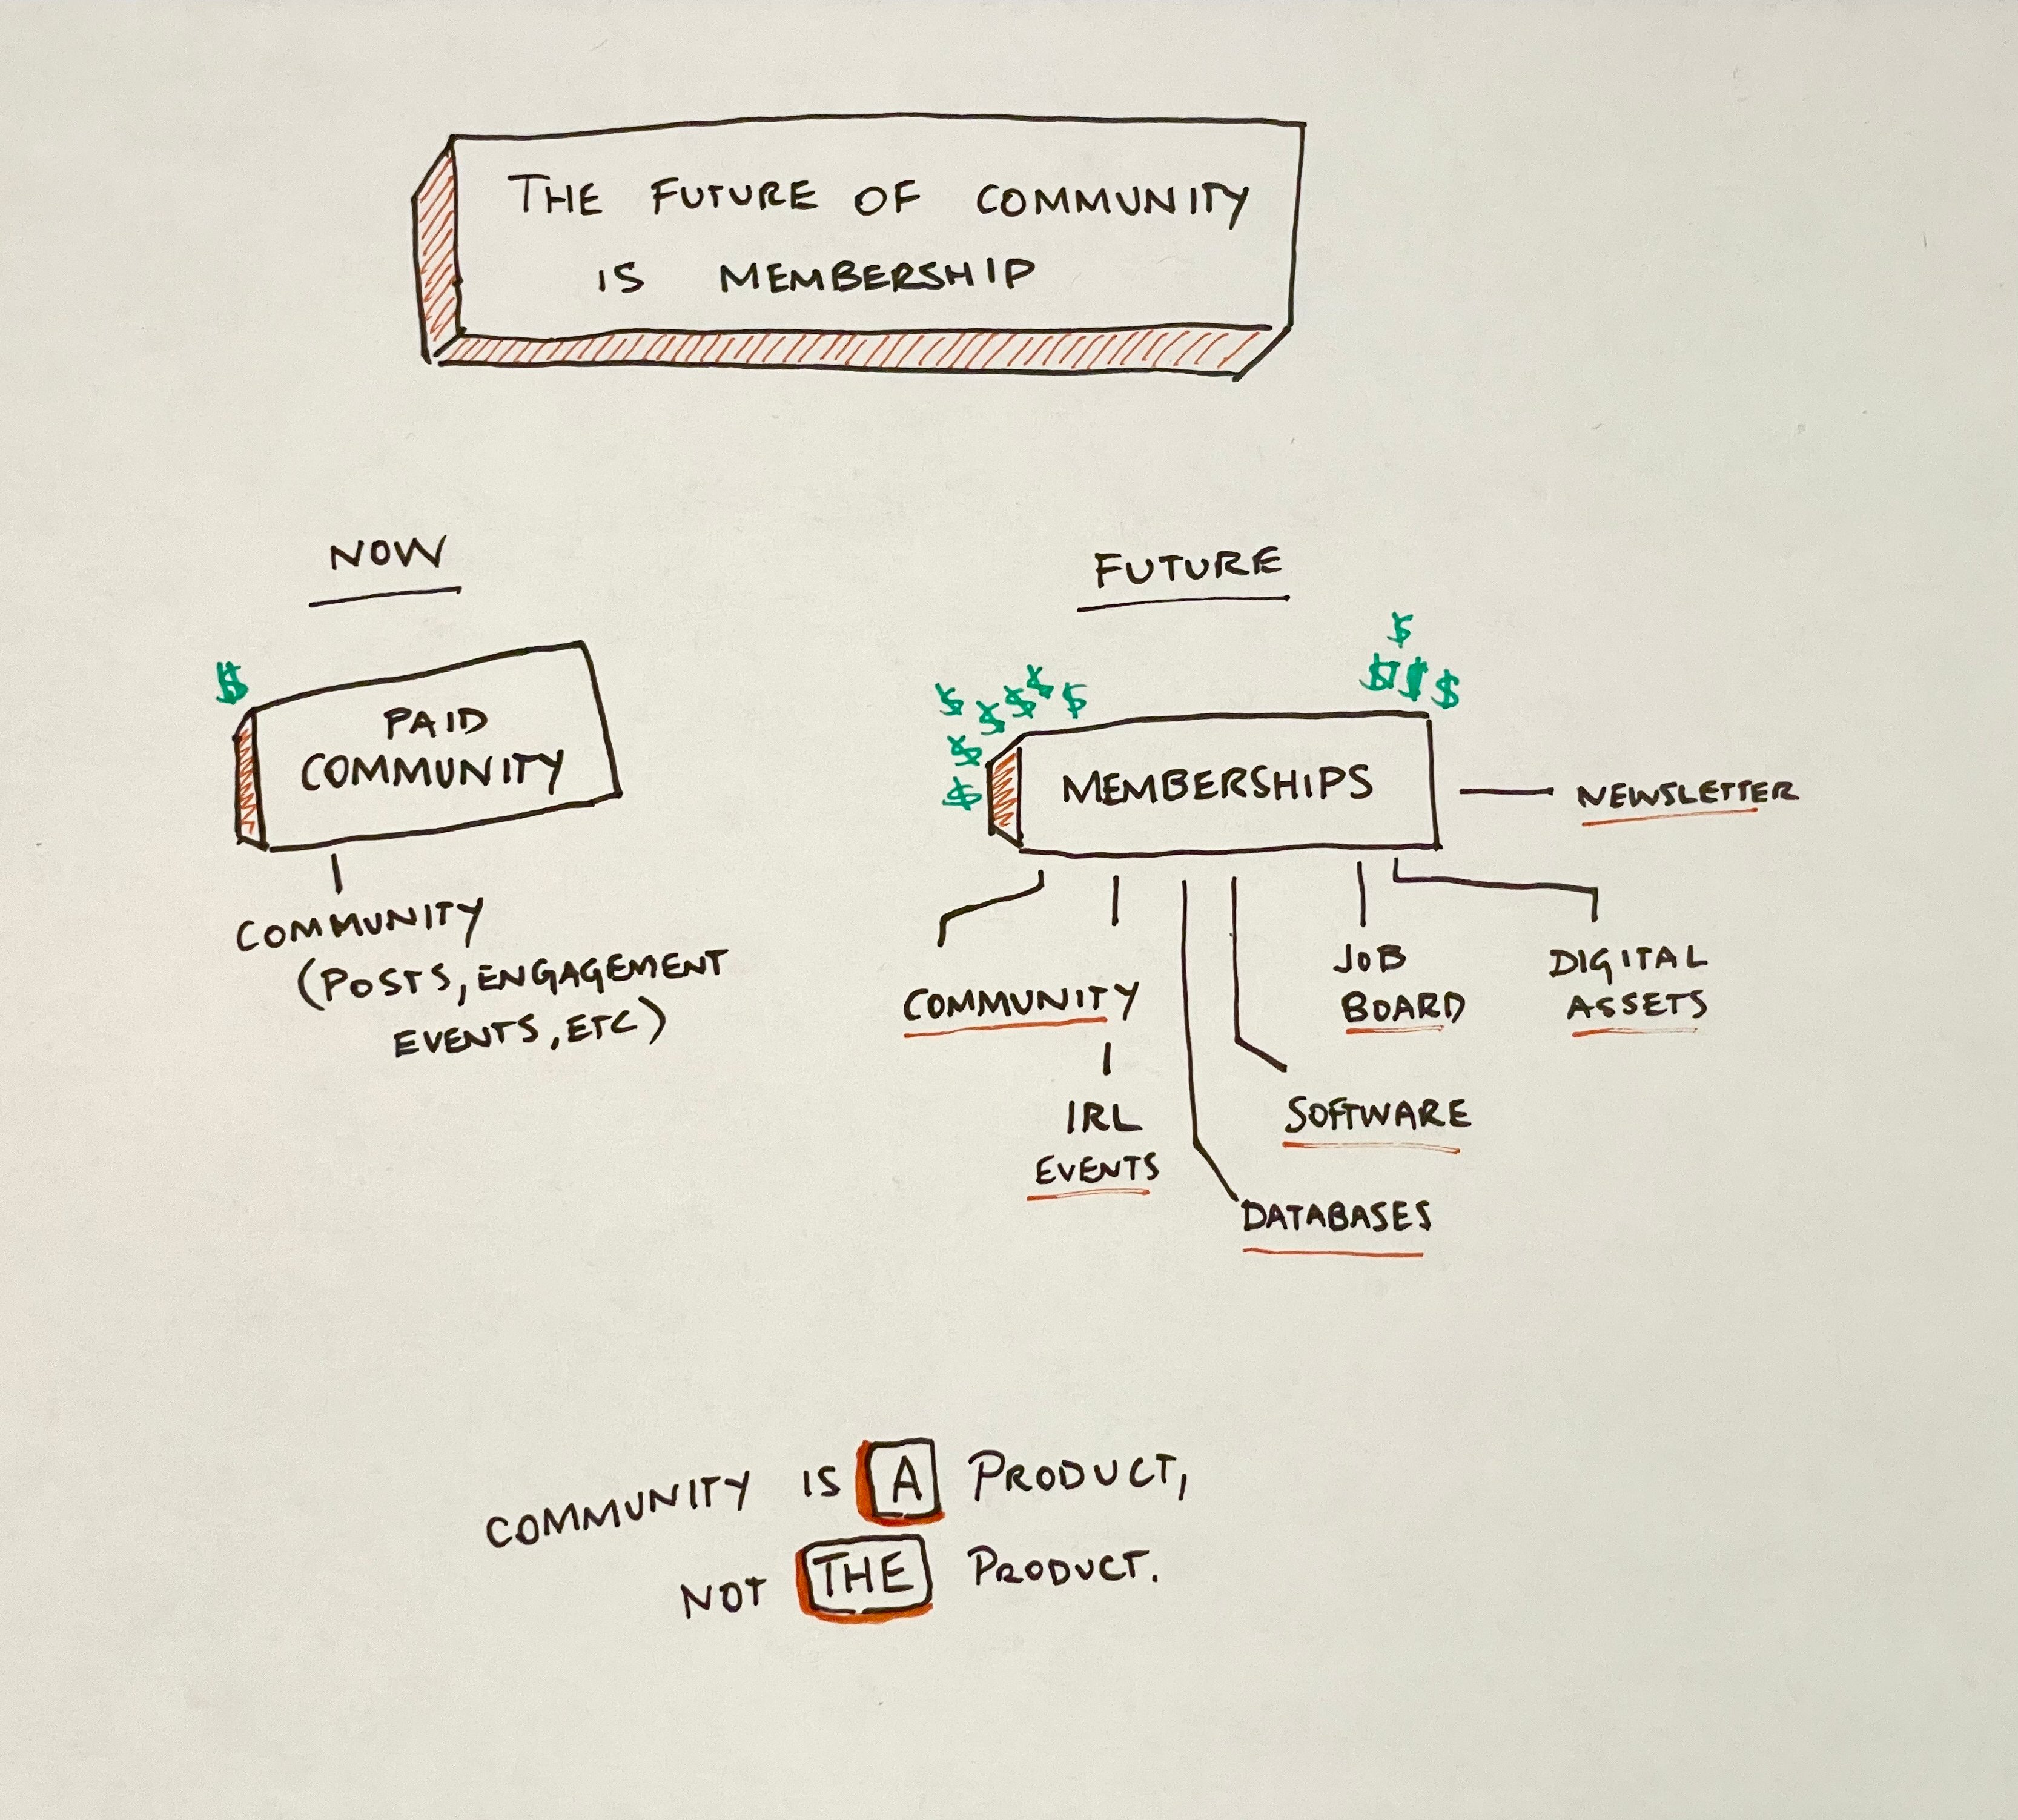 THE FUTURE OF COMMUNITY
IS MEMBERSHIP
NOW
$
PAID
COMMUNITY
COMMUNITY
(POSTS, ENGAGEMENT
EVENTS, ETC)
FUTURE
$
$ $ $
$ $ $ $ $
$
$
MEMBERSHIPS
NEWSLETTER
COMMUNITY
IRL
EVENTS
DATABASES
SOFTWARE
JOB
BOARD
DIGITAL
ASSETS
COMMUNITY IS A PRODUCT,
NOT THE PRODUCT.